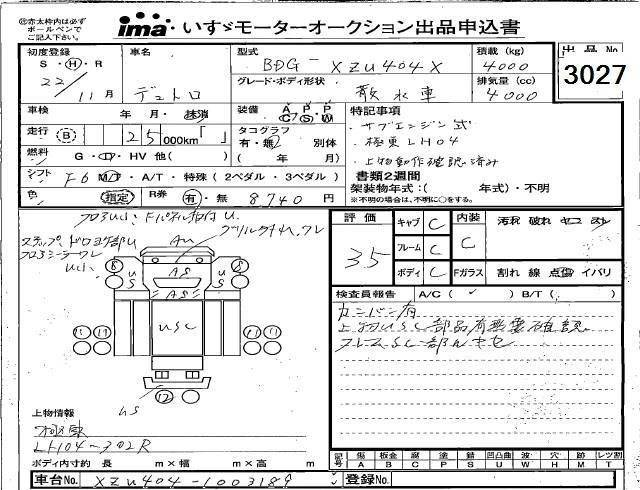 ㊟赤太枠内は必ず
ボールペンで
ご記入下さい。
ima いすゞモーターオークション出品申込書
初度登録 車名 型式 積載 (kg) 出品No
S・H・R BDG- XZU404X 4000 3027
22 11月 デュトロ グレード・ボディ形状 排気量 (cc)
散水車 4000
車検 年・月・抹消 装備 A P P C S W 特記事項
走行 B 25 000km「 」 タコグラフ ・サブエンジン式
有・無 別体 ・極東LH04
燃料 G・D・HV 他( ) ( 年 月) ・上物動作確認済み
シフト F6 M/T・A/T・特殊 (2ペダル・3ペダル) 書類2週間
架装物年式:( 年式)・不明
色 (指定) R券 有・無 8740 円 ※不明の場合は、不明に○をする。
評価 キャブ C 内装 汚れ 破れ ヤコ スレ
3.5 フレーム C C
ボディ C Fガラス 割れ 線 点傷 イバリ
グリルキレ、ワレ
AU
ステップ、ドロヨケ部U
検査員報告 A/C( ✓ ) B/T( )
カンバン有
上物USC部品有無要確認
フレームSC部ルキセ
AS
AS
US
US
USC
US
上物情報
極東
LH04-302R
ボディ内寸約 長 m×幅 m×高 m
記号 傷 板金 腐 塗 錆 凹凸曲 波 穴 跡 レツ割
A B C P S U W H M T
車台No. XZU404-1003189 登録No.